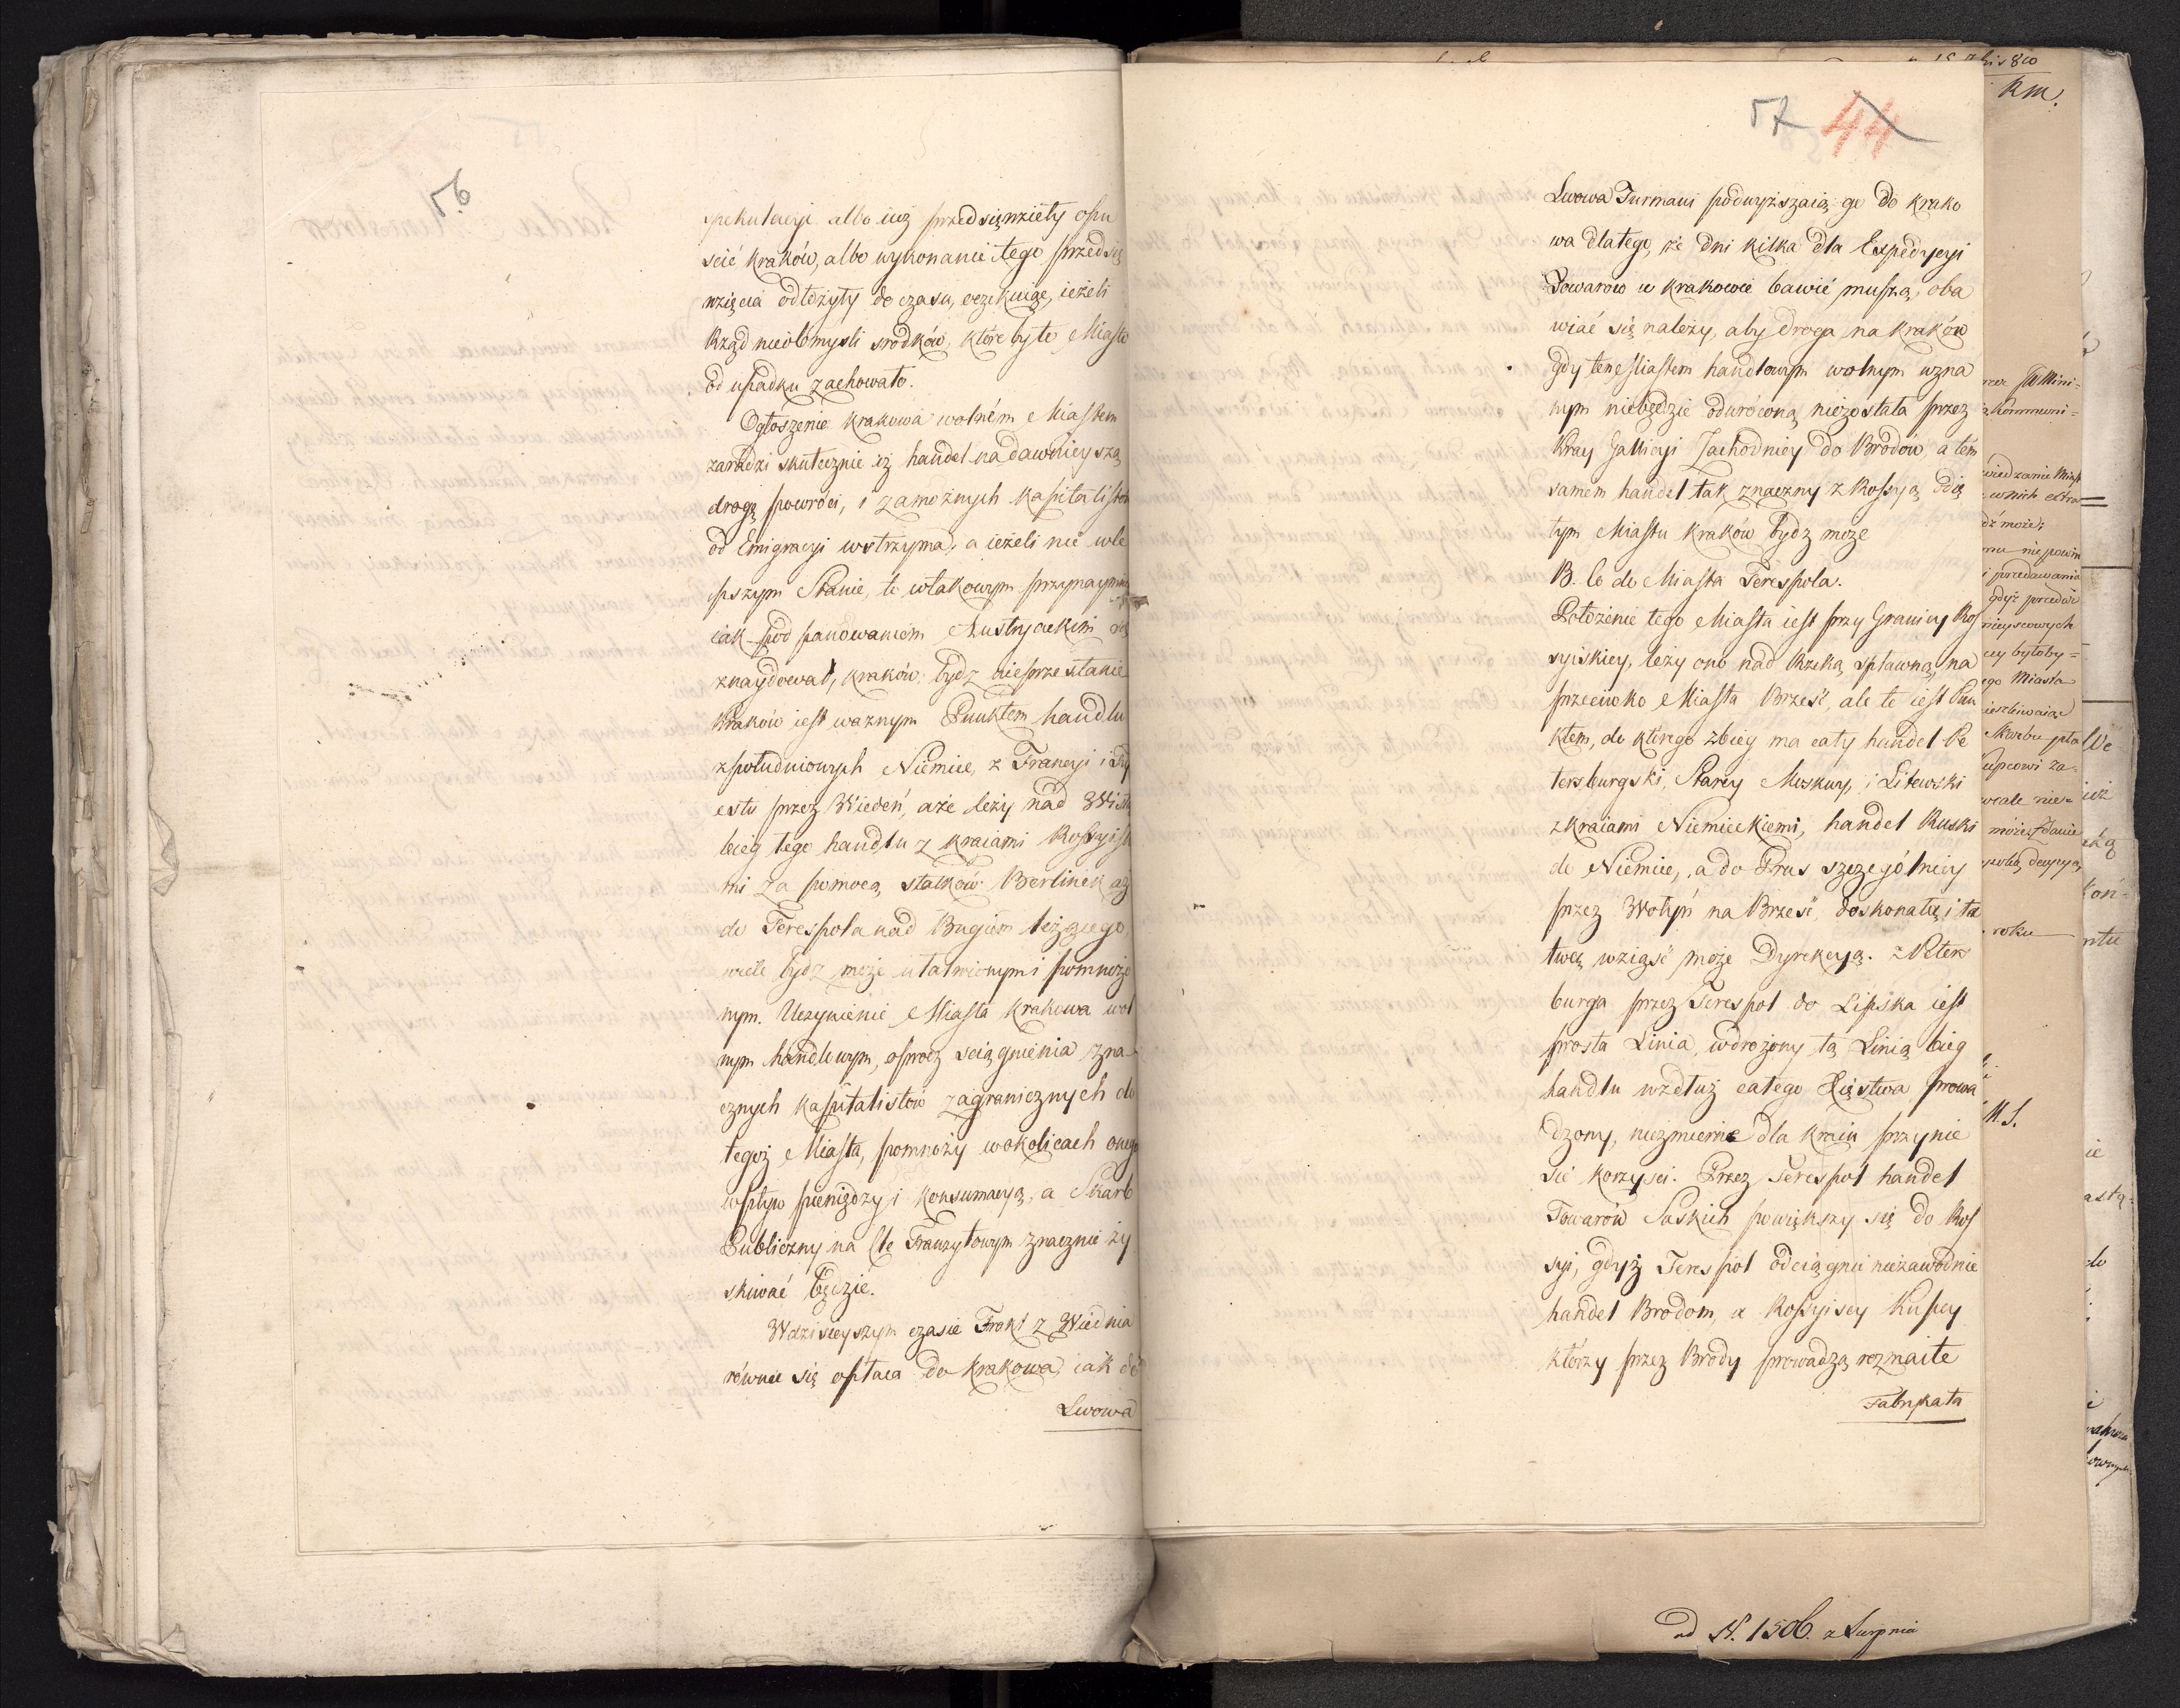 56
spekulacyi albo iuż przedsięwzięły opu
ścić Kraków, albo wykonanie tego przedsię
wzięcia odłożyły do czasu, oczekuiąc, ieżeli
Rząd nieobmyśli srodków, które by to Miasto
od upadku zachowało.
Ogłoszenie Krakowa wolném Miastem
zaradzi skutecznie iż handel na dawnieyszą
drogę powróci, i zamożnych Kapitalistów
od Emigracyi wstrzyma, a ieżeli nie w le
pszym Stanie, to w takowym przynaymniey
iak pod panowaniem Austryackim się
znaydował, Kraków bydz nieprzestanie
Kraków iest ważnym Punktem handlu
z południowych Niemiec, z Francyi i Try
estu przez Wiedeń, a że leży nad Wisłą
bieg tego handlu z kraiami Rossyiski
mi za pomocą statków Berlinek aż
do Terespola nad Bugiem leżącego
wiele bydz może ułatwionym i pomnożo
nym. Uczynienie Miasta Krakowa wol
nym handlowym, oprocz sciągnienia zna
cznych kapitalistów zagranicznych do
tegoż Miasta, pomnoży w okolicach onego
wpływ pieniędzy i Konsumacyą, a Skarb
Publiczny na Cle Tranzytowym znacznie zy
skiwać będzie.
W dzisieyszym czasie Frokt z Wiednia
równie się opłaca do Krakowa, iak do
Lwowa
57 44
Lwowa Furmani podwyższaią go do Krako
wa dlatego, że dni kilka dla Expedycyi
Towarow w Krakowie bawić muszą, oba
wiać się należy, aby droga na Kraków
gdy ten Miastem handlowym wolnym uzna
nym niebędzie odwróconą niezostała przez
Kray Gallicyi Zachodniey do Brodów, a tém
samém handel tak znaczny z Rossyą od ię
tym Miastu Kraków bydz może
B. Co do Miasta Terespola.
Położenie tego Miasta iest przy Granicy Ros
syiskiey, leży ono nad Rzeką spławną, na
przeciwko Miasta Brześć, ale to iest Pun
ktem, do którego zbieg ma cały handel Pe
tersburgski, Starey Moskwy, i Litewski
z kraiami Niemieckiemi, handel Ruski
do Niemiec, a do Prus szczególniey
przez Wołyń na Brześć, doskonałą i ła
twą wziąść może Dyrekcyą. z Peters
burga przez Terespol do Lipska iest
prosta Linia, wdrożony tą Linią bieg
handlu wzdłuż całego Xięstwa prowa
dzony, niezmierne dla kraiu przynie
sie korzysci. Przez Terespol handel
Towarów Saskich powiększy się do Ros
syi, gdyż Terespol odciągnie niezawodnie
handel Brodom, a Rossyiscy Kupcy
którzy przez Brody prowadzą rozmaite
Fabrykata
ad N. 1506. z Sierpnia
Km.
wiedzanie Miast
w nich extra
dź może;
nu niepowin
i przedawania
gdyż przedaż
mieyscowych
cy byłoby
ego Miasta
Skarbu pła
upcowi za-
wcale nie-
roku
M. S.